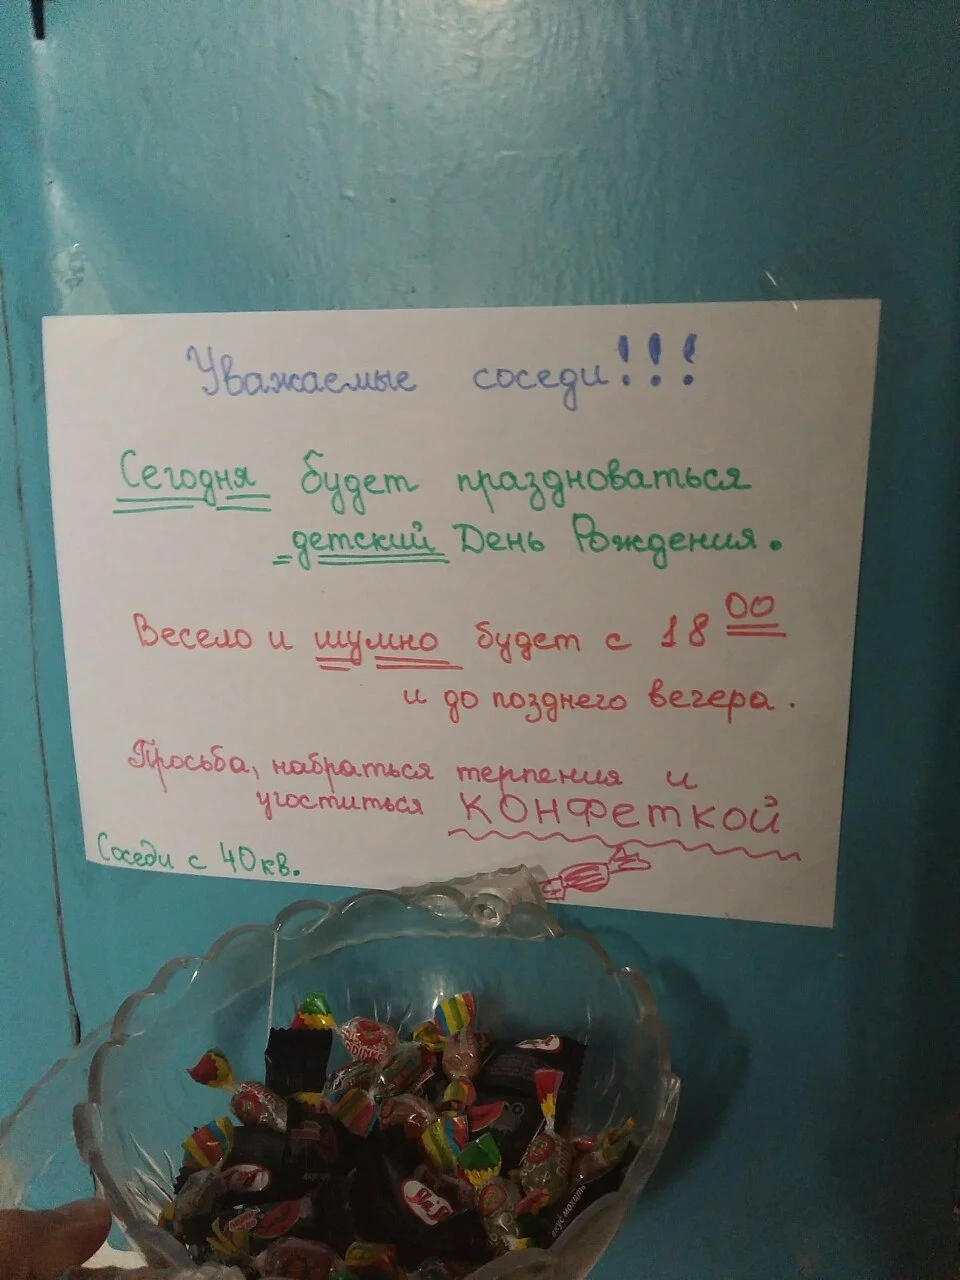 Уважаемые соседи!!!
Сегодня будет праздноваться
детский День Рождения.
Весело и шумно будет с 18 00
и до позднего вечера.
Просьба, набраться терпения и
угоститься КОНФЕТКОЙ
Соседи с 40кв.
вкус мохито